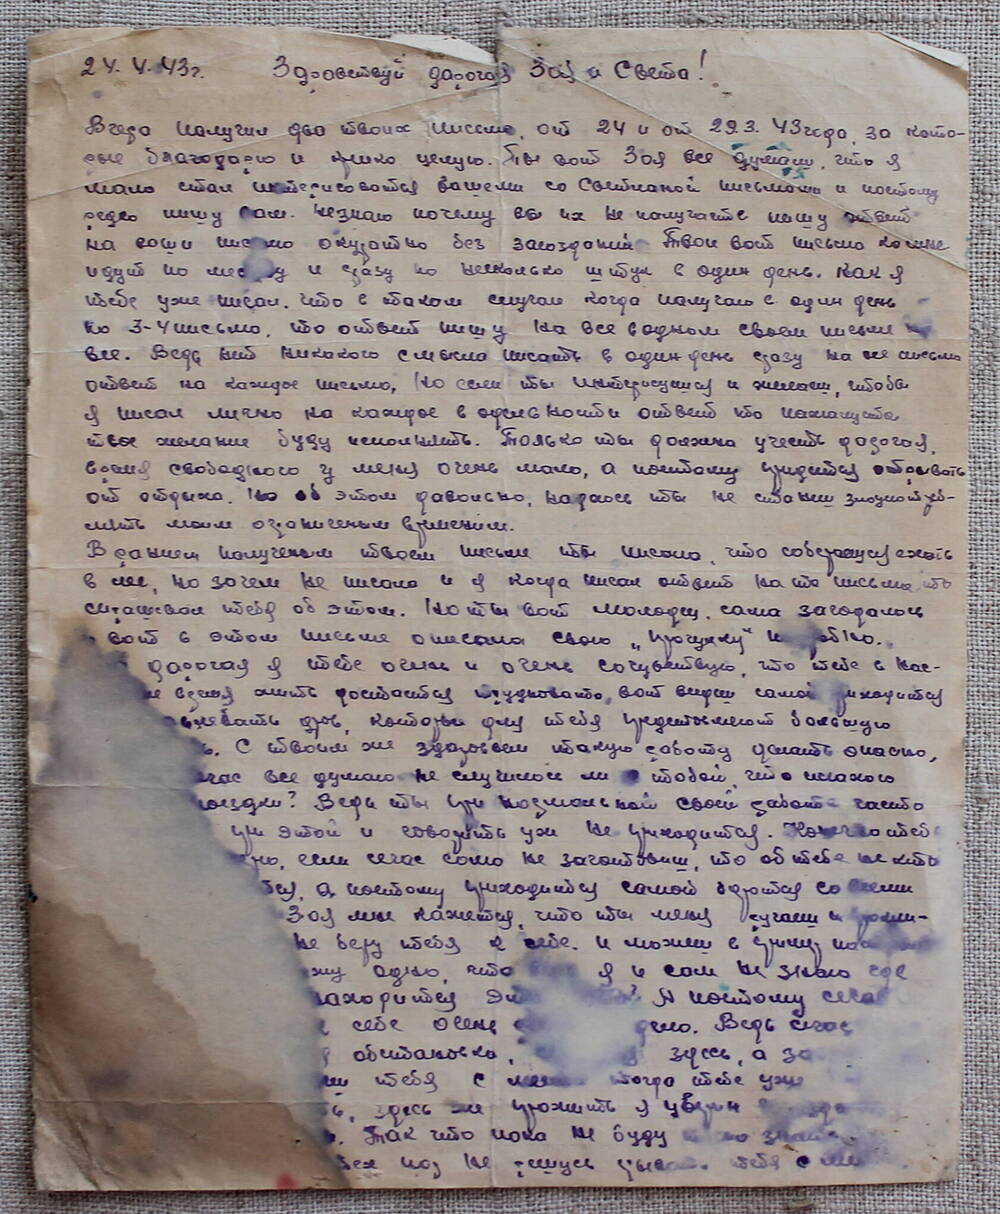 24.4.43г. Здравствуй дорогая Зоя и Света!
Вчера получил два твоих письма, от 24 и от 29.3.43 года, за кото-
рые благодарю и крепко целую. Ты вот Зоя все думаеш, что я
мало стал интересоватся вашеми со Светланой письмами и поэтому
редко пишу вам. Незнаю почему вы их не получаете пишу ответ
на ваши письмо окуратно без загоздания. Твои вот письмо ко мне
идут по месяцу и сразу по несколько штук в один день. Как я
тебе уже писал, что в таком случаи когда получаю в один день
по 3-4 письмо, то ответ пишу на все в одном своем письме
все. Ведь нет никакого смысла писать в один день сразу на все письмо
ответ на каждое письмо, Но если ты интересуешся и желаеш, чтобы
я писал лично на каждое в отдельности ответ то пожалуста
твое желание буду исполнять. Только ты должна учесть дорогая,
время свободного у меня очень мало, а поэтому придется отрывать
от отдыха. Но об этом довольно, надеюсь ты не станеш злоупотреб-
лять моим ограниченым временем.
В ранием полученым твоем письме ты писала, что собераешся ехать
в лес, но зачем не писала и я когда писал ответ на то письмо, то
спрашевал тебя об этом. Но ты вот молодец, сама загодалось
вот в этом письме описала свою „прогулку"
дорогая я тебе очень и очень сочувствую, что тебе в нас-
время жить достается трудновато, вот видиш самой приходится
дров, которы для тебя представляют большую
С твоим же здоровьем такую работу делать опасно,
все думаю не случилось ли с тобой, что плохого
поездки? Ведь ты при нормальной своей работе часто
при этой и говорить уж не приходится. Конечно тебе
если сечас сама не заготовиш, то об тебе не кто
а поэтому приходится самой бороться со всеми
Зоя мне кажется, что ты меня ругаеш и
не беру тебя к себе. И можеш в
одно, что я и сам не знаю где
находится А поэтому
себе очень Ведь сечас
обстановка, здесь, а
тебя с тогда тебе уже
здесь же прожить я уверен
Так что пока не буду
пор не решусь тебя с